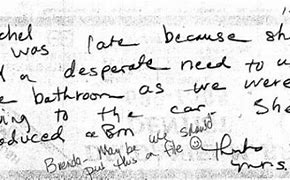 chel
was late because sh
d a desperate need to u
e bathroom as we were
ing to the car. She
oduced a Bm
Brenda - Maybe we should
put this on file ☺ thanks